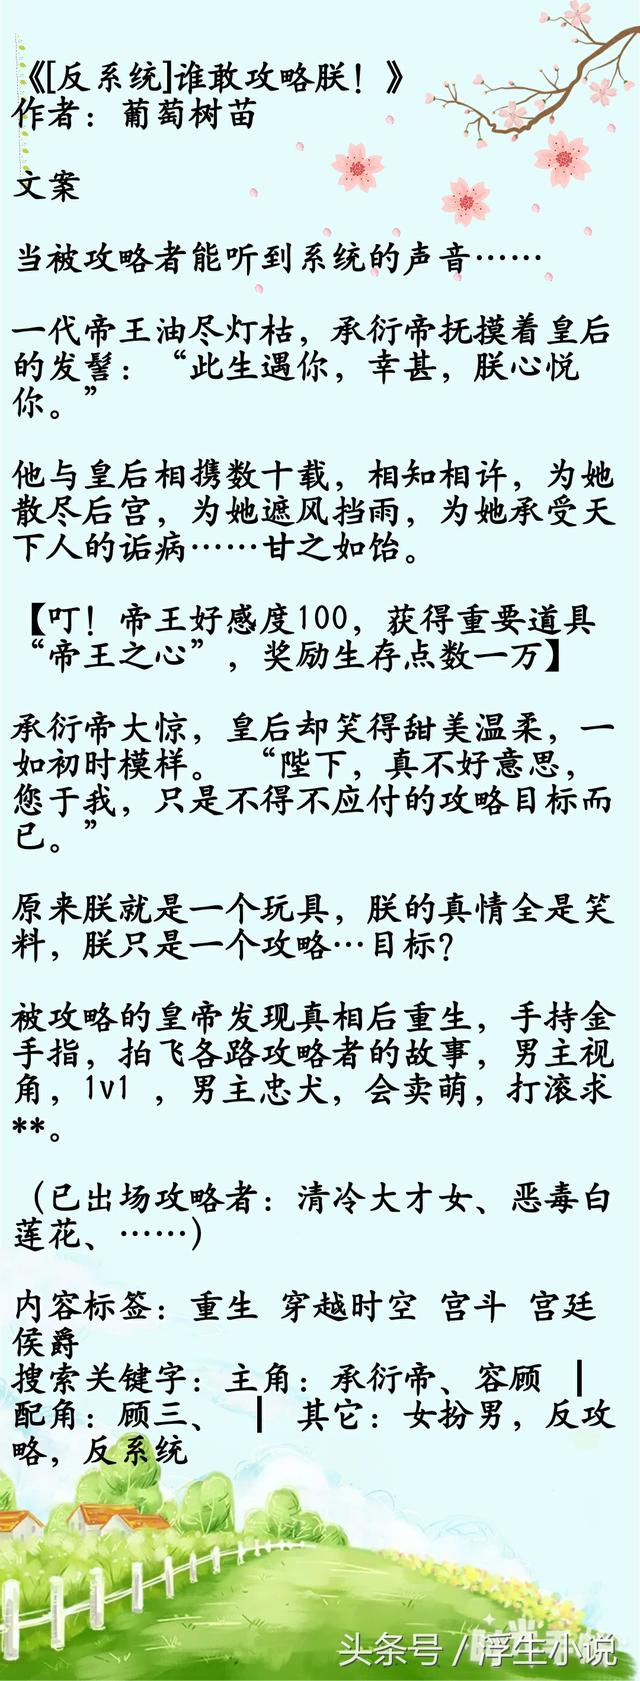 《[反系统]谁敢攻略朕！》
作者：葡萄树苗
文案
当被攻略者能听到系统的声音……
一代帝王油尽灯枯，承衍帝抚摸着皇后
的发髻：“此生遇你，幸甚，朕心悦
你。”
他与皇后相携数十载，相知相许，为她
散尽后宫，为她遮风挡雨，为她承受天
下人的诟病……甘之如饴。
【叮！帝王好感度100，获得重要道具
“帝王之心”，奖励生存点数一万】
承衍帝大惊，皇后却笑得甜美温柔，一
如初时模样。 “陛下，真不好意思，
您于我，只是不得不应付的攻略目标而
已。”
原来朕就是一个玩具，朕的真情全是笑
料，朕只是一个攻略…目标？
被攻略的皇帝发现真相后重生，手持金
手指，拍飞各路攻略者的故事，男主视
角，1v1 ，男主忠犬，会卖萌，打滚求
**。
（已出场攻略者：清冷大才女、恶毒白
莲花、……）
内容标签：重生 穿越时空 宫斗 宫廷
侯爵
搜索关键字：主角：承衍帝、容顾 ┃
配角：顾三、 ┃ 其它：女扮男，反攻
略，反系统
头条号 / 浮生小说